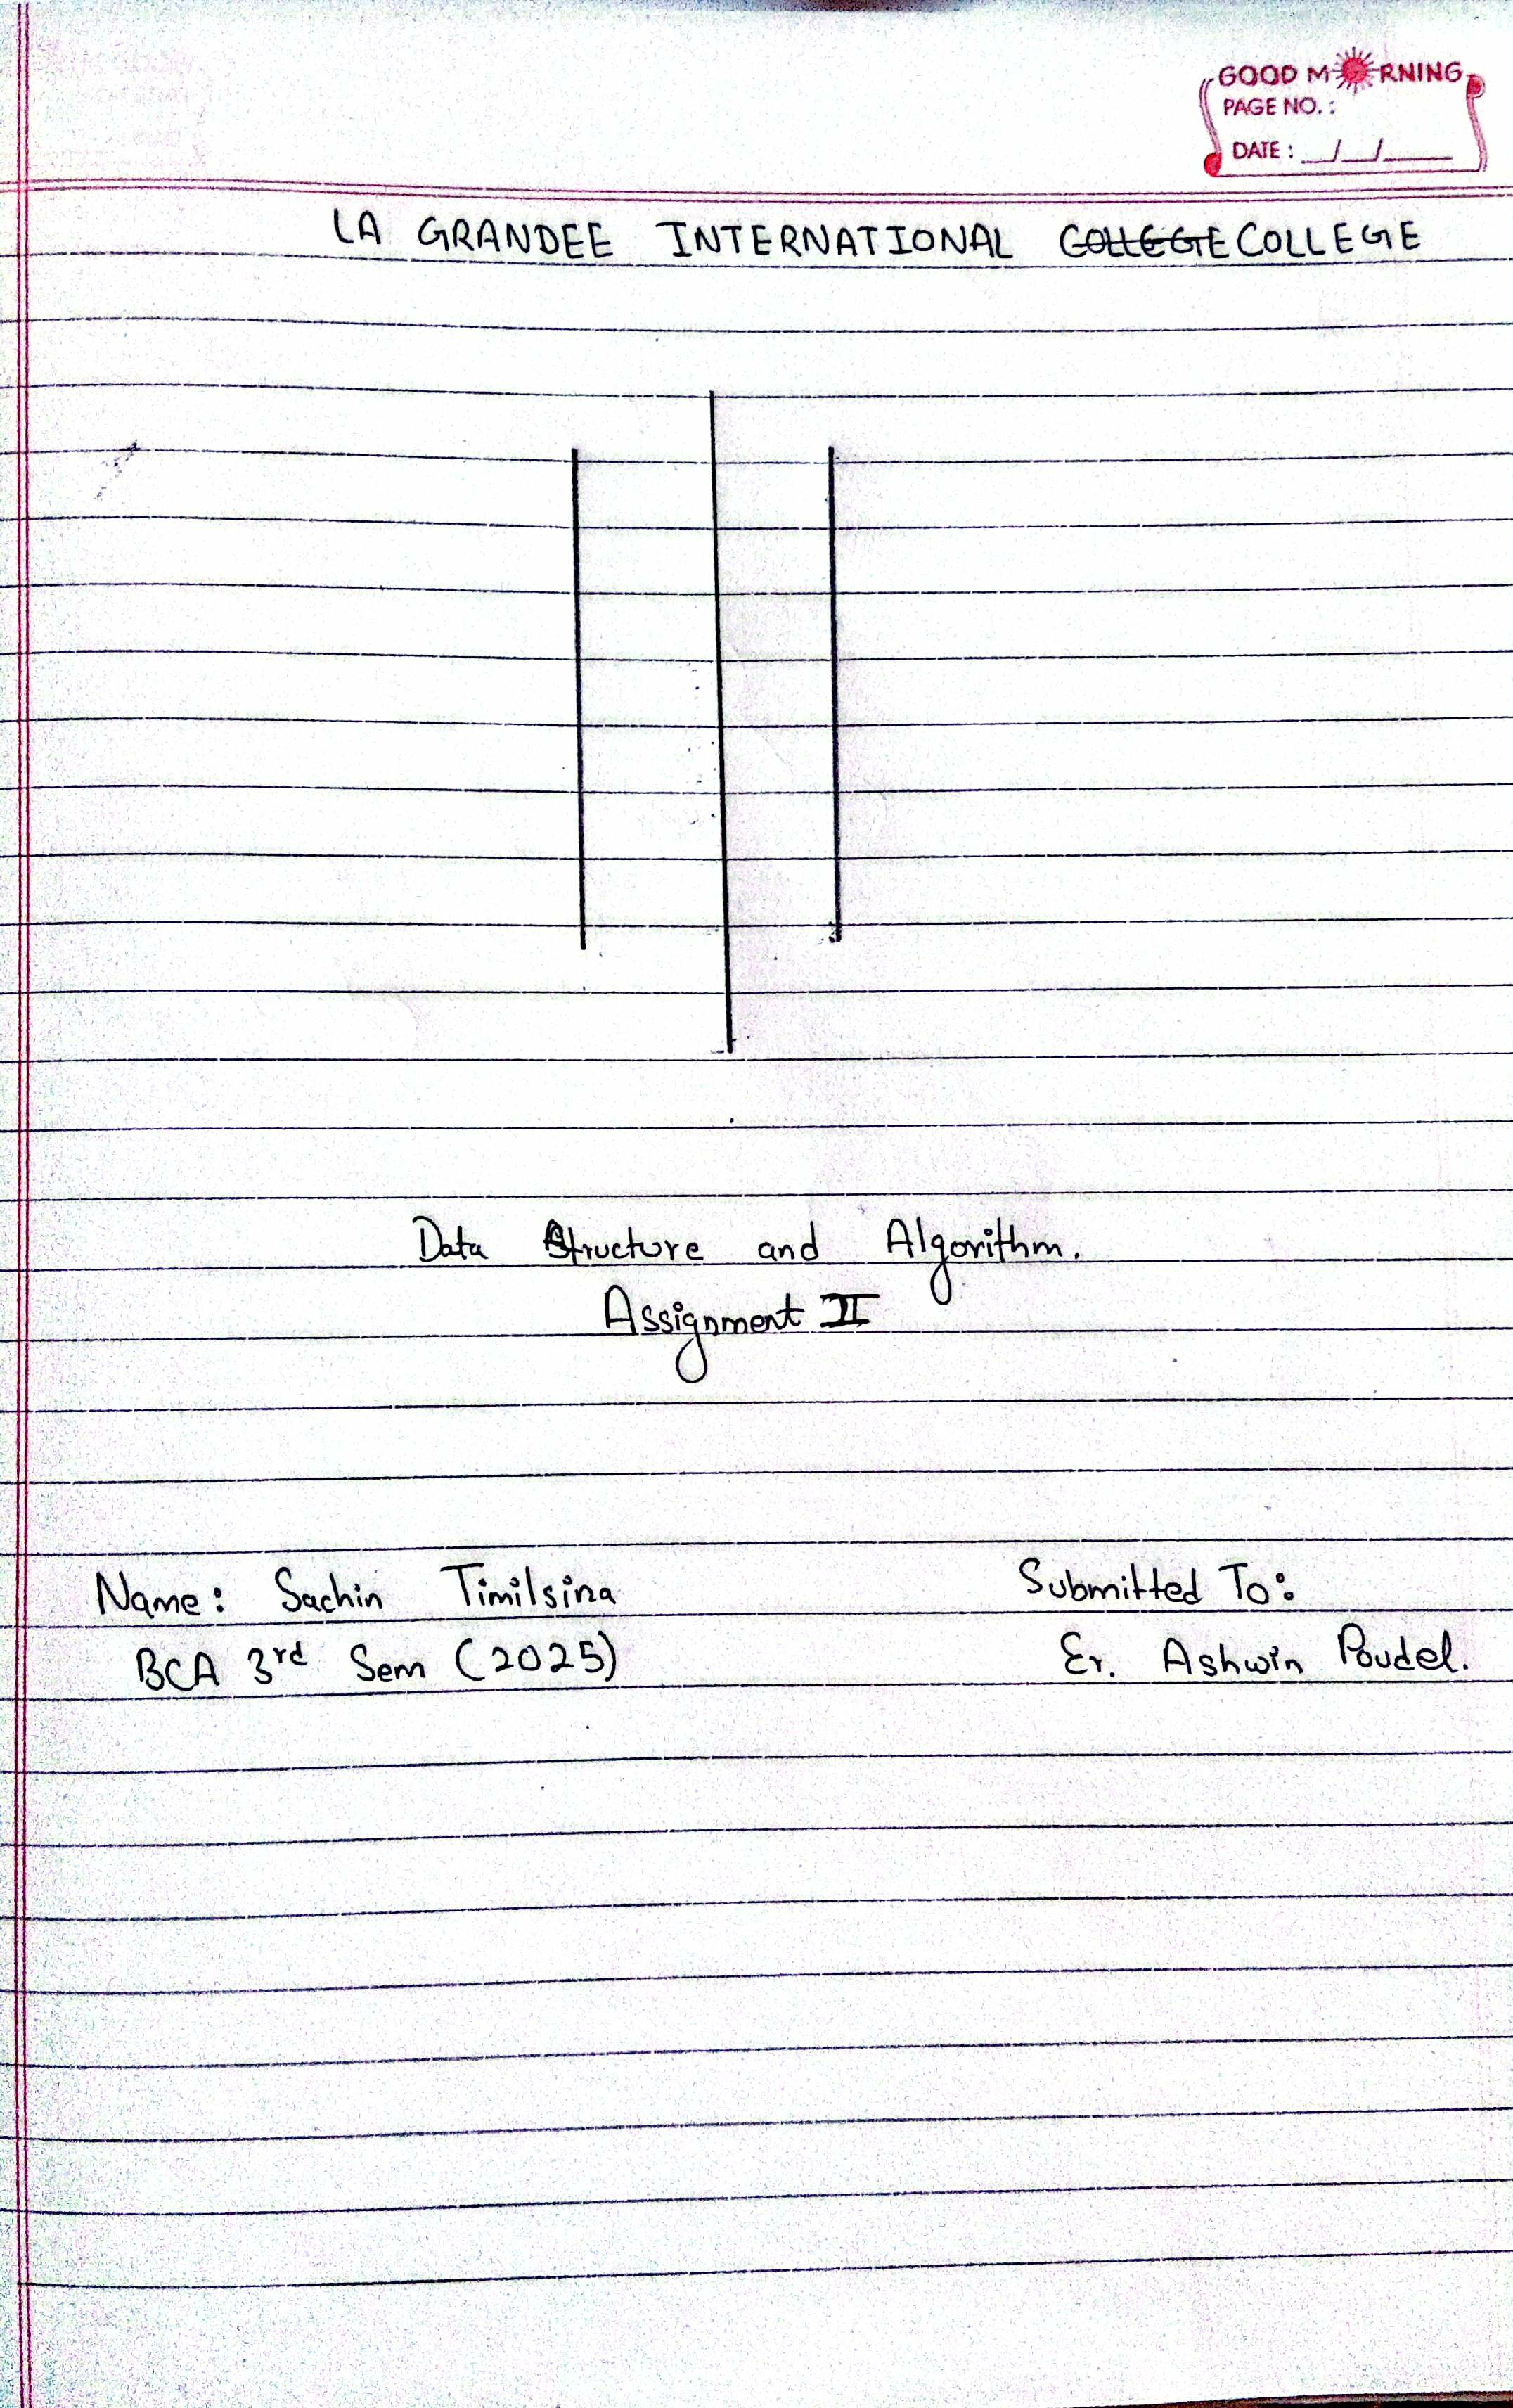 GOOD MORNING
PAGE NO. :
DATE : __/__/____
LA GRANDEE INTERNATIONAL COLLEGE COLLEGE
Data Structure and Algorithm.
Assignment II
Name: Sachin Timilsina Submitted To:
BCA 3rd Sem (2025) Er. Ashwin Poudel.